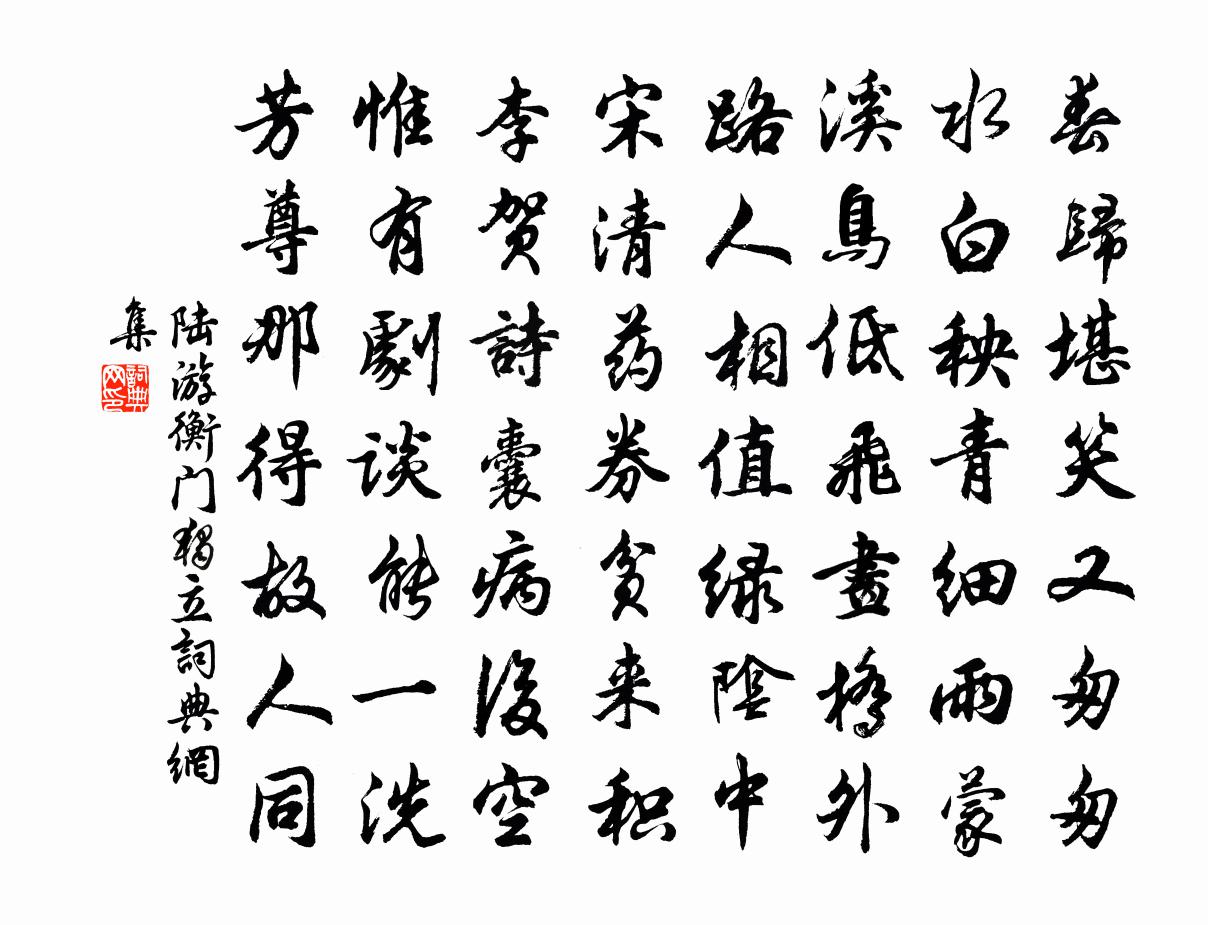 春歸堪笑又匆匆
水白秧青细雨蒙
溪鳥低飛畫橋外
路人相值绿陰中
宋清药券貧来积
李贺詩囊病後空
惟有劇谈能一洗
芳尊那得故人同
陆游衡门独立詞典網
集
詞典网印